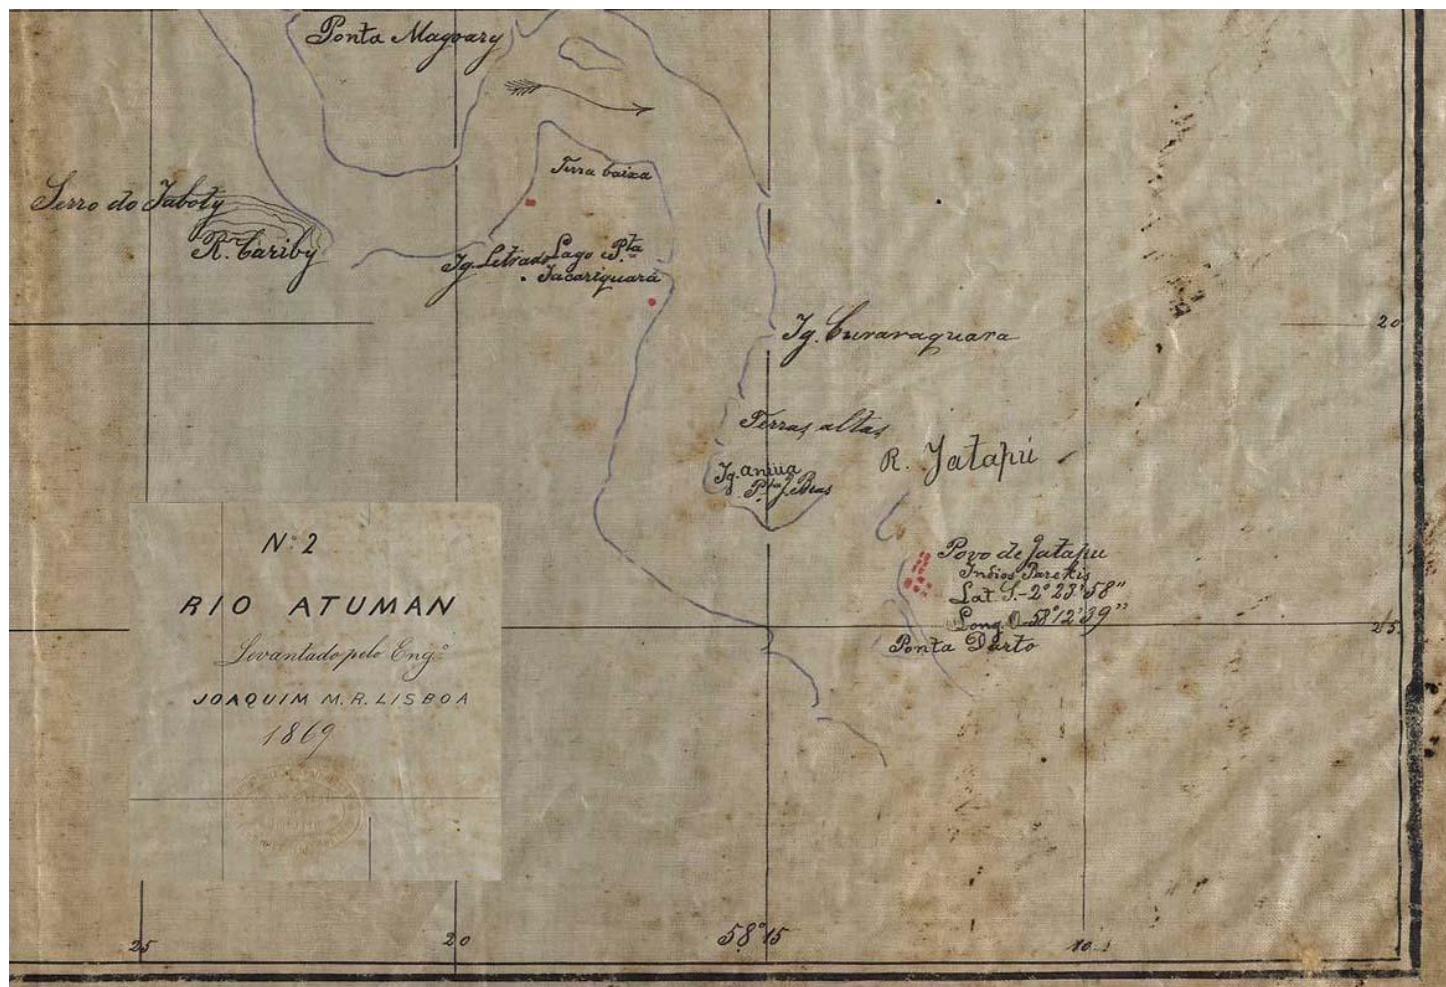 Ponta Magoary
Terra baixa
Serro do Jaboty
R. Cariby
Ig. Letrado Lago Pta
Jacariquara
20
Ig. Curaraquara
Terras altas
R. Jatapú
Ig. aniua
Pta J. Beas
Povo de Jatapu
Indios Parekis
Lat. S. - 2° 23' 58"
Long. O 58° 12' 39"
25
Ponta Darto
Nº 2
RIO ATUMAN
Levantado pelo Engº
JOAQUIM M. R. LISBOA
1869
25
20
58° 15
10